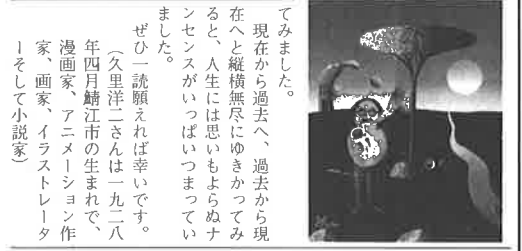 てみました。
　現在から過去へ、過去から現
在へと縦横無尽にゆきかってみ
ると、人生には思いもよらぬナ
ンセンスがいっぱいつまってい
ました。
　ぜひ一読願えれば幸いです。
　（久里洋二さんは一九二八
年四月鯖江市の生まれで、
漫画家、アニメーション作
家、画家、イラストレータ
ーそして小説家）